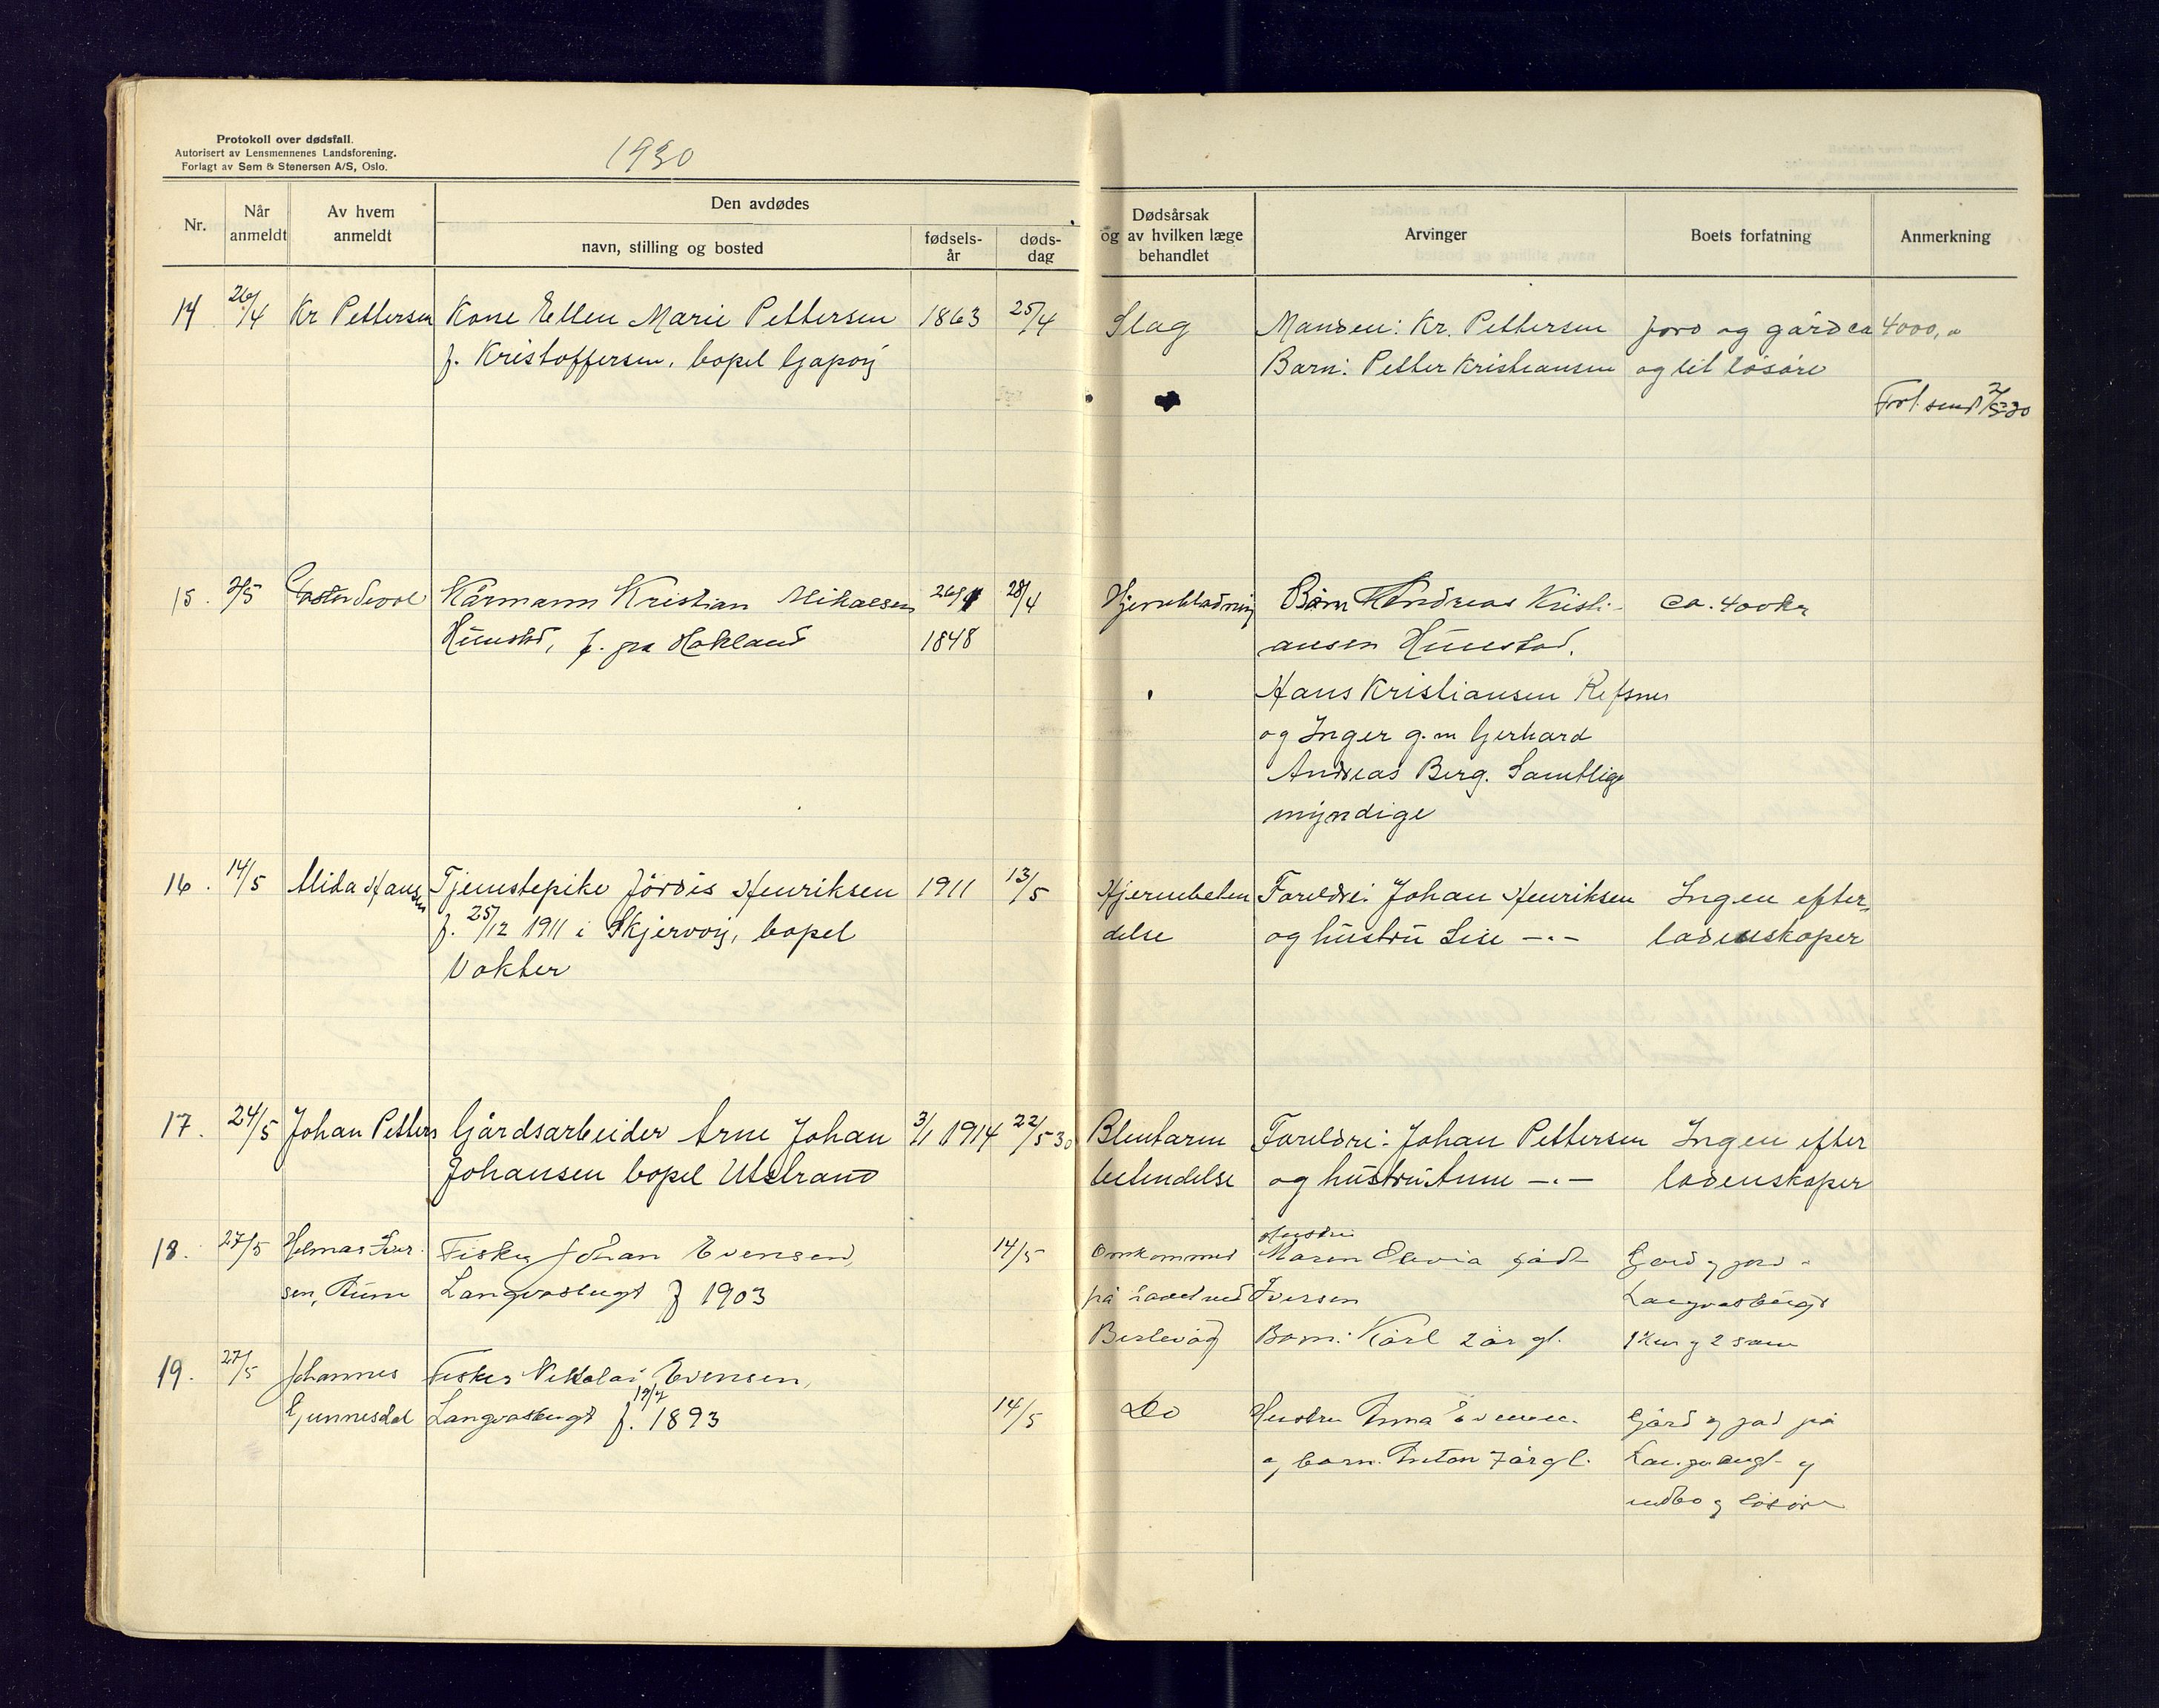 Protokoll over dødsfall.
Autorisert av Lensmennenes Landsforening.
Forlagt av Sem & Stenersen A/S, Oslo.
1930
Nr.
Når anmeldt
Av hvem anmeldt
Den avdødes
navn, stilling og bosted
fødsels-
år
døds-
dag
Dødsårsak
og av hvilken læge
behandlet
Arvinger
Boets forfatning
Anmerkning
14 26/4 Kr Pettersen Kone Ellen Marie Pettersen 1863 25/4 Slag Manden: Kr. Pettersen Jord og gård ca 4000,
f. Kristoffersen, bopel Gapøy Barn: Petter Kristiansen og lit løsøre
send 2/5 30
15. 2/5 Kårmann Kristian Mikalsen 26/ 28/4 Hjerneblødning Barn Andreas Kristi-
ca. 400 kr
f. på Hokland 1848 ansen Hunstad.
Hans Kristiansen Refsnes
og Inger g. m Gerhard
Andreas Berg. Samtlige
myndige
16. 14/5 Alida Hansen Tjenestepike Jördis Henriksen 1911 13/5 Hjernebeten Foreldre: Johan Henriksen Ingen efter,
f. 25/12 1911 i Skjervøy, bopel delse og hustru Lise -"- ladenskaper
Vokter
17. 24/5 Johan Petters Gårdsarbeider Arne Johan 3/1 1914 22/5 30 Blentarm Foreldre: Johan Pettersen Ingen efter
Johansen bopel Utstrand betendelse og hustru Anne -"- ladenskaper
18. 27/5 Helmar Iver- Fisker Johan Evensen, 14/5 Omkommet Hustru
Maren født Gård og jord
sen, Langvasbugt f 1903 på havet ved Iversen Langvasbugt
Berlevåg Barn: Karl 2 år gl. 1 kr og 2 sau
19. 27/5 Johannes Fisker Nikolai Evensen,
Gunnesdal Langvasbugt f. 19/7 1893 14/5 Do Hustru Anna Evensen. Gård og jord på
og barn: Anton 7 år gl. og
indbo og løsøre